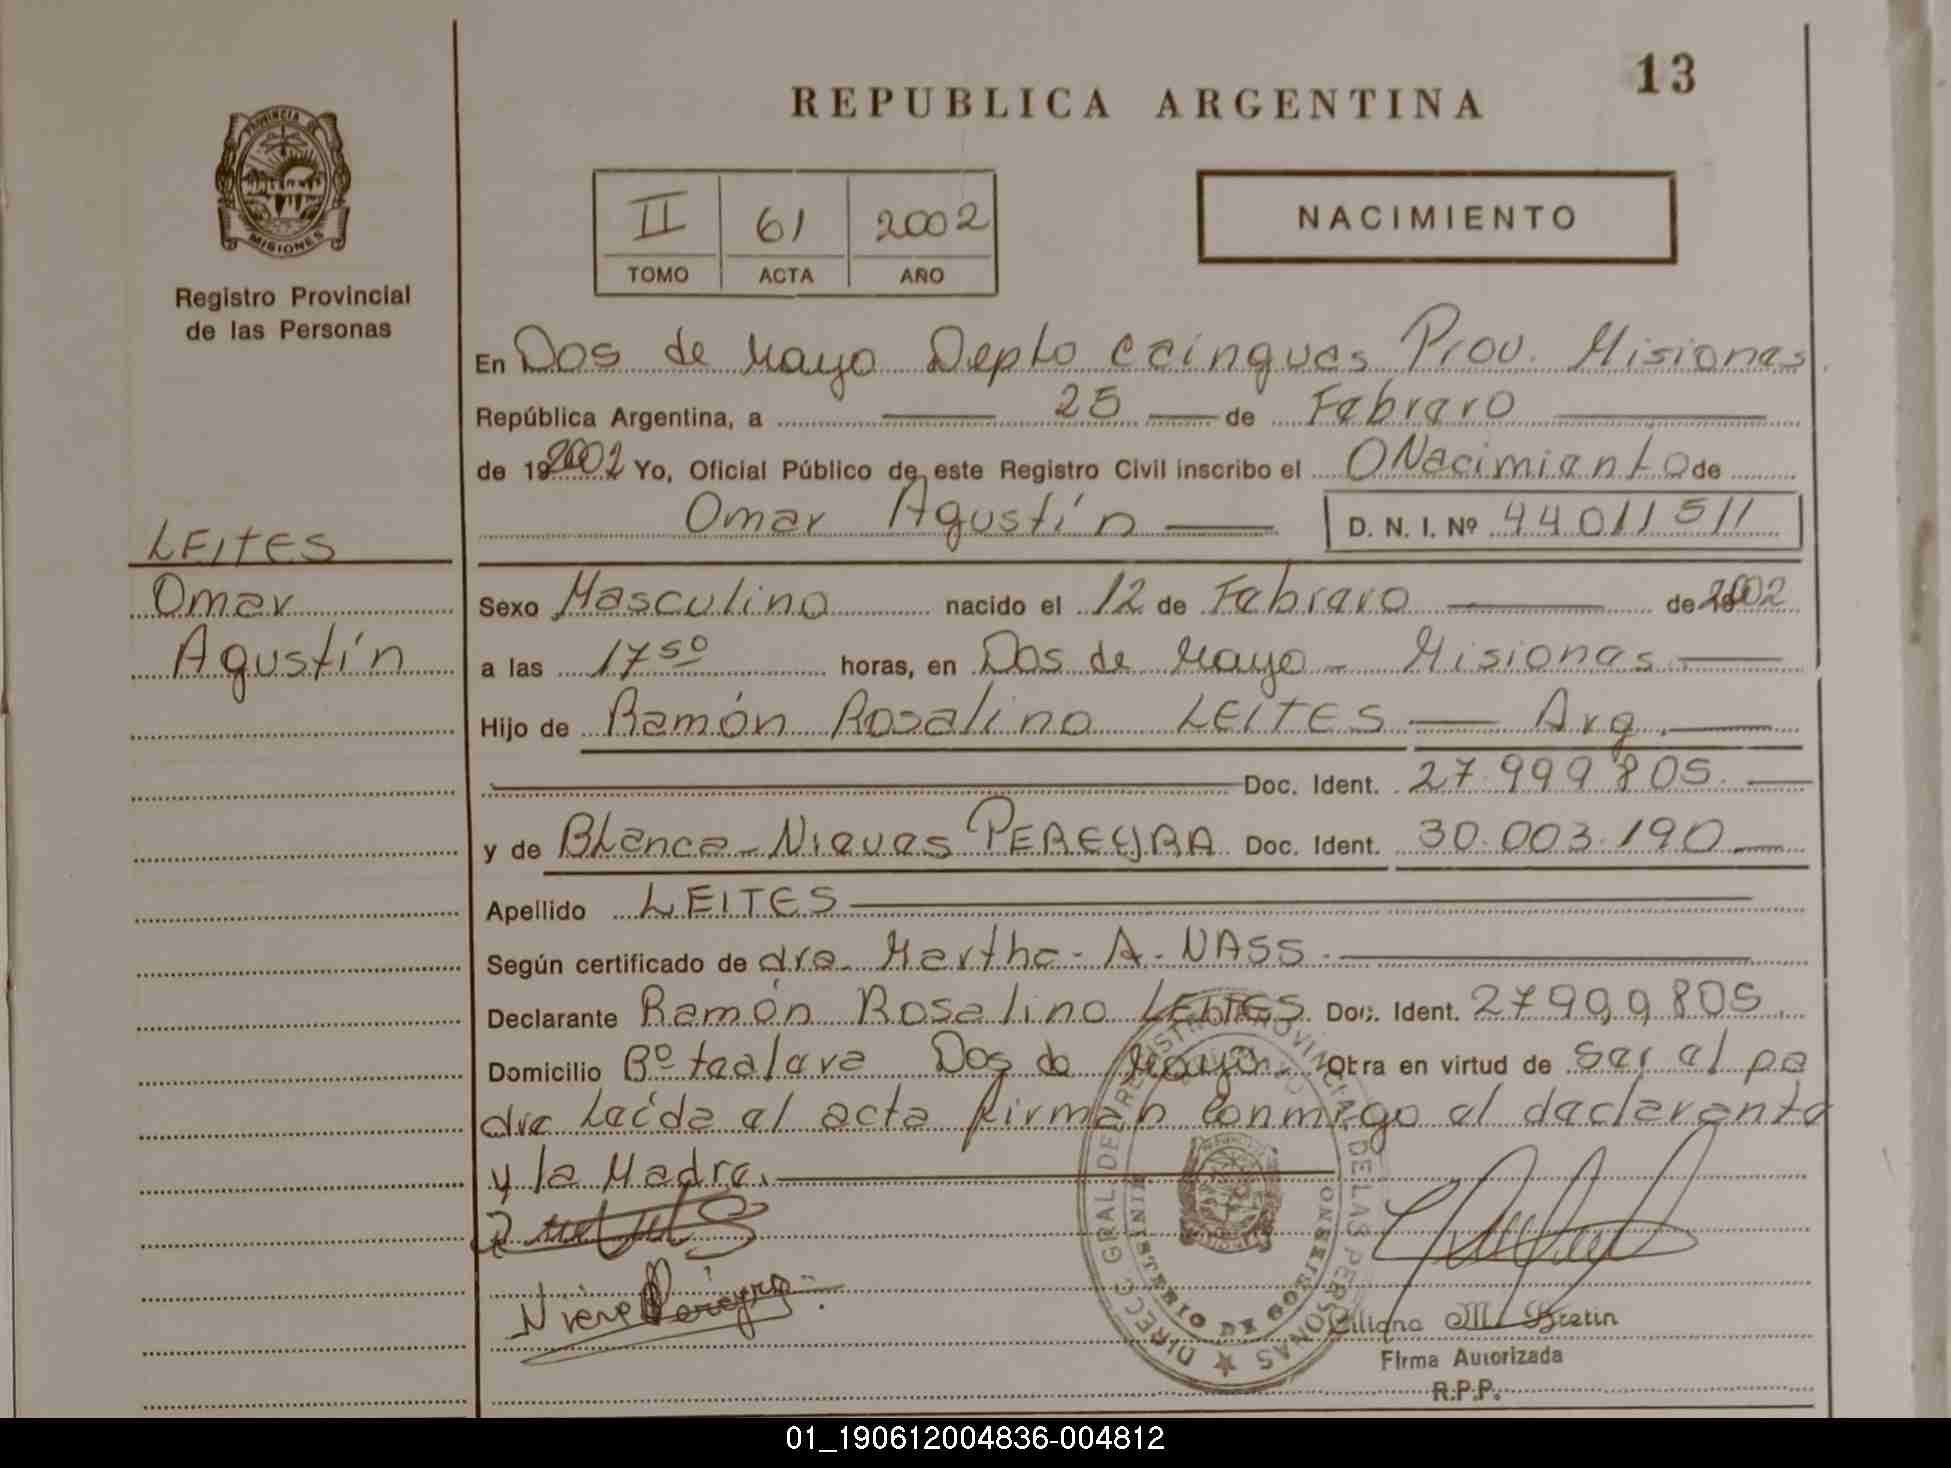 13
REPUBLICA ARGENTINA
PROVINCIA DE
MISIONES
Registro Provincial
de las Personas
II 61 2002
TOMO ACTA AÑO
NACIMIENTO
En Dos de Mayo Depto Cainguas Prov. Misiones.
República Argentina, a 25 de Febrero
de 192002 Yo, Oficial Público de este Registro Civil inscribo el Nacimiento de
Omar Agustín D. N. I. Nº 44011511
LEITES
Omar
Agustín
Sexo Masculino nacido el 12 de Febrero de 2002
a las 17 50 horas, en Dos de Mayo - Misiones
Hijo de Ramón Rosalino LEITES Arg.
Doc. Ident. 27.999.805.
y de Blanca Nieves PEREYRA Doc. Ident. 30.003.190
Apellido LEITES
Según certificado de dra. Martha - A - NASS
Declarante Ramón Rosalino LEITES. Doc. Ident. 27999805
Domicilio Bº Dos de Mayo. Obra en virtud de ser el pa
dre Leída el acta firman conmigo el declarante
y la Madre.
Nieve Pereyra
DIRECC. GRAL. DE REGISTRO PROVINCIAL DE LAS PERSONAS
MINISTERIO DE GOBIERNO
Liliana M. Bretin
Firma Autorizada
R.P.P.
01_190612004836-004812